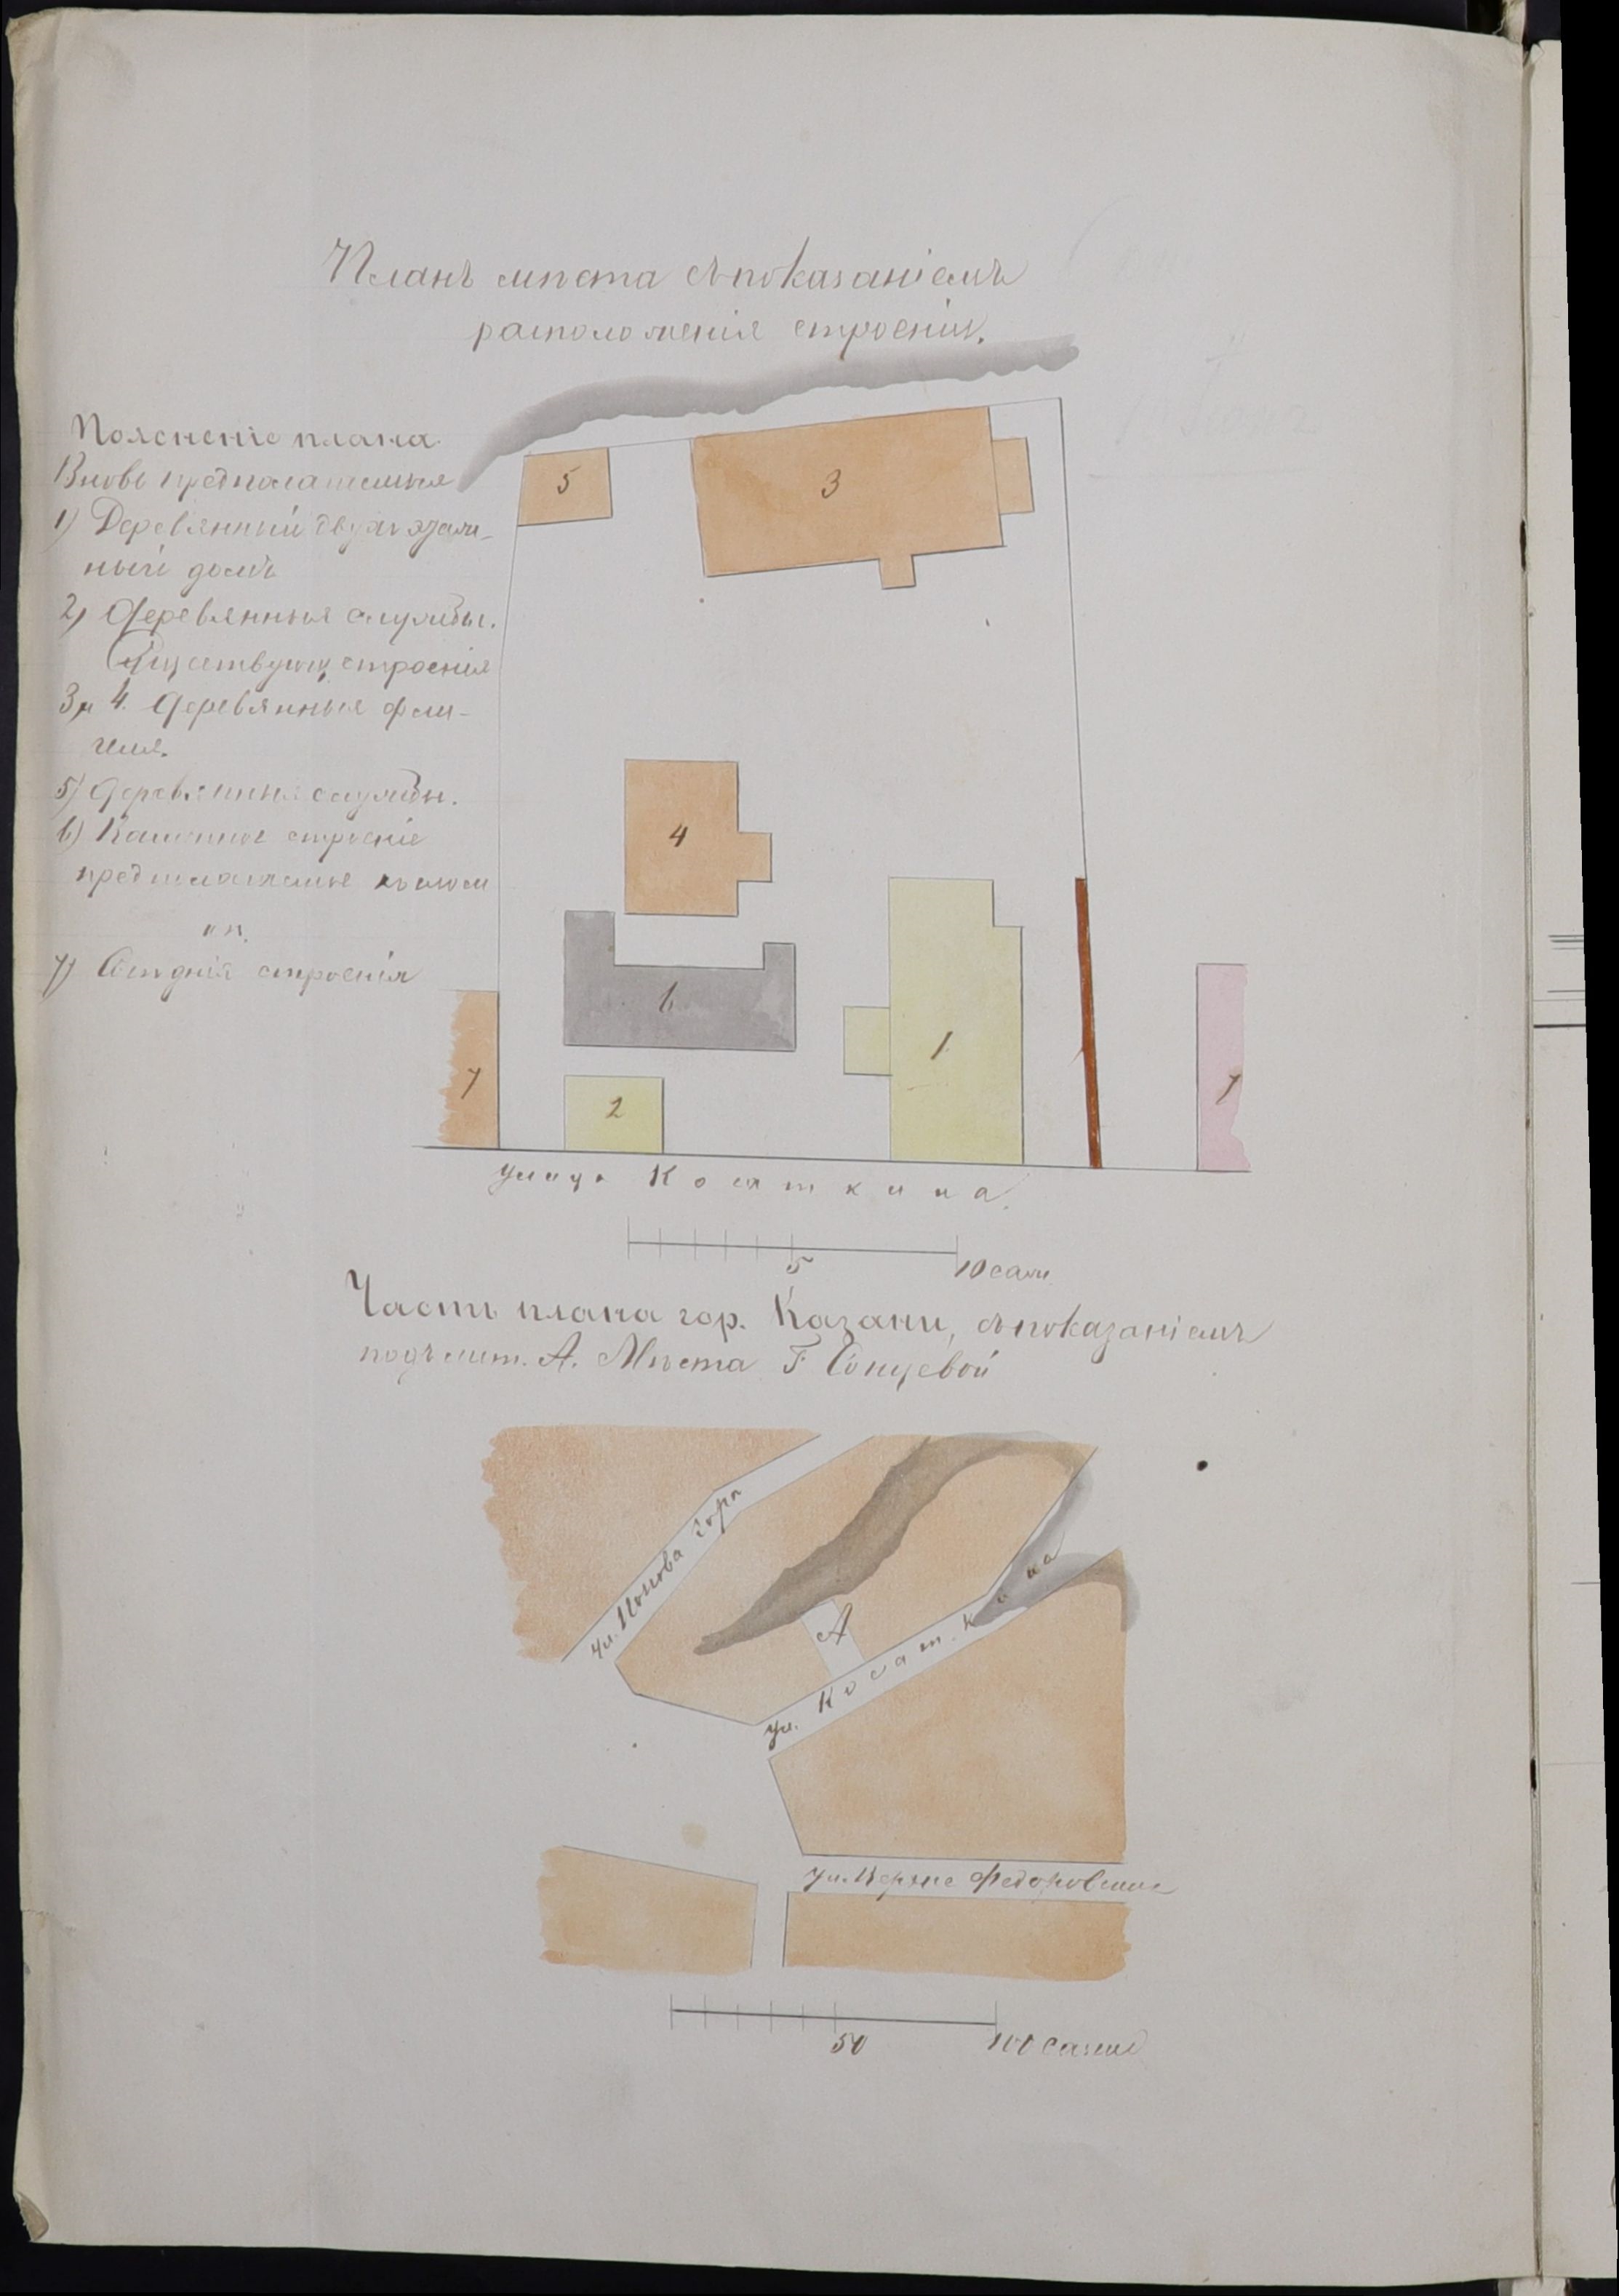 Планъ мѣста съ показаніемъ
расположенія строенія.
Поясненіе плана
Вновь предполагаемыя
1) Деревянный двухъ этаж-
ный домъ
2) Деревянныя службы.
Существующ. строенія
3 и 4. Деревянные фли-
геля.
5) Деревянныя службы.
6) Каменное строеніе
предполагаемое къ слом
кѣ.
7) Сосѣднія строенія
5
3
4
6
1
2
7
7
улица Косаткина.
5
10 саж.
Часть плана гор. Казани, съ показаніемъ
подъ лит. А. Мѣста Г. Сонцевой
ул. Попова гора
А
ул. Косаткина
ул. Верхне Федоровская
50
100 сажен